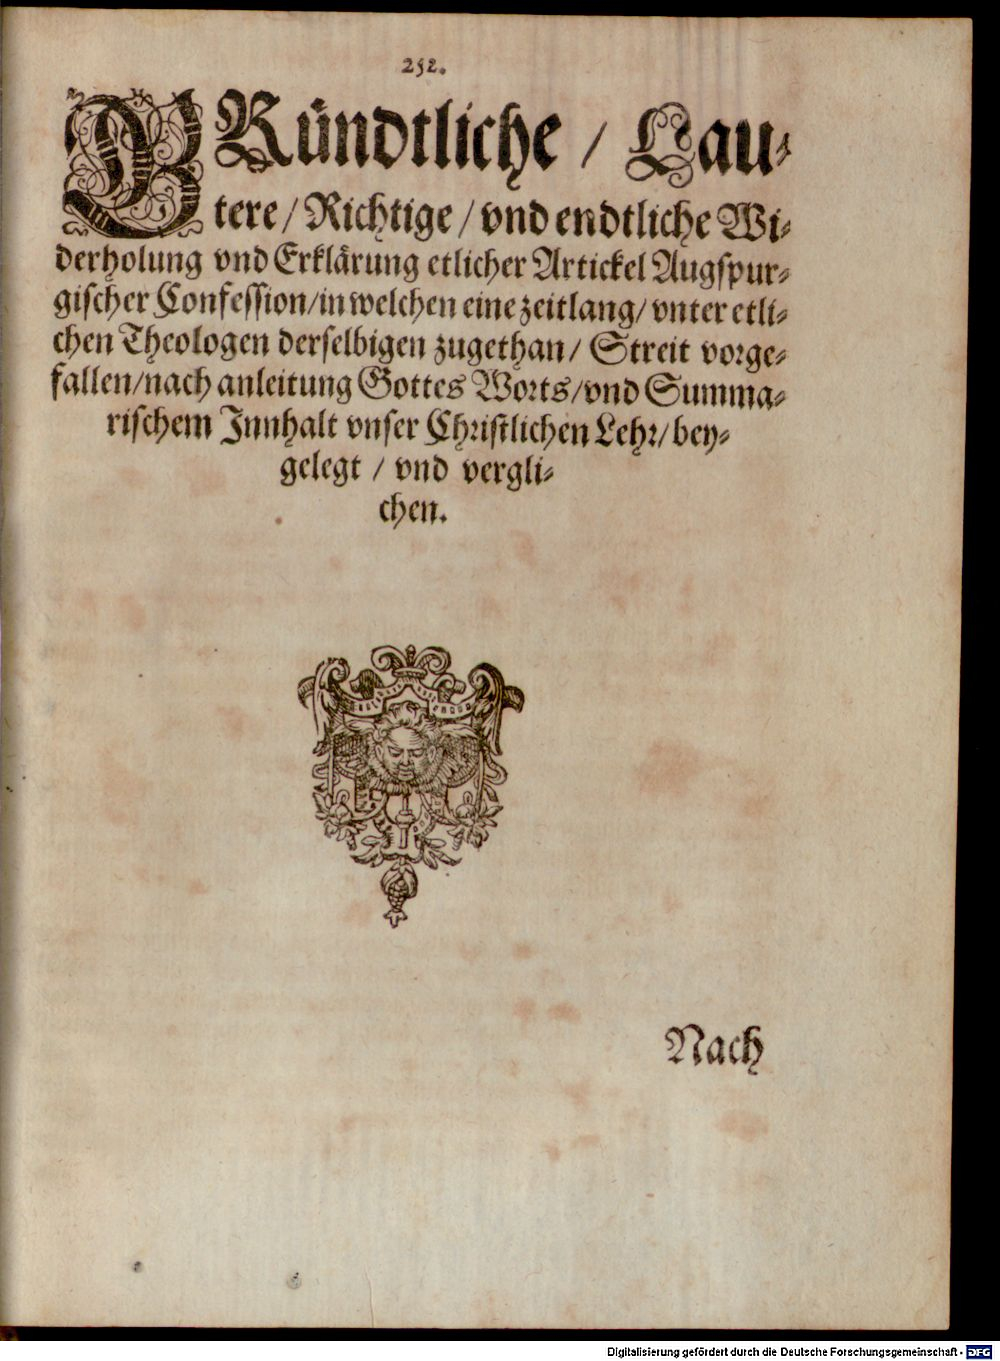 252.
GRündtliche / Lau-
tere / Richtige / vnd endtliche Wi-
derholung vnd Erklärung etlicher Artickel Augspur-
gischer Confession / in welchen eine zeitlang / vnter etli-
chen Theologen derselbigen zugethan / Streit vorge-
fallen / nach anleitung Gottes Worts / vnd Summa-
rischem Innhalt vnser Christlichen Lehr / bey-
gelegt / vnd vergli-
chen.
Nach
Digitalisierung gefördert durch die Deutsche Forschungsgemeinschaft - DFG